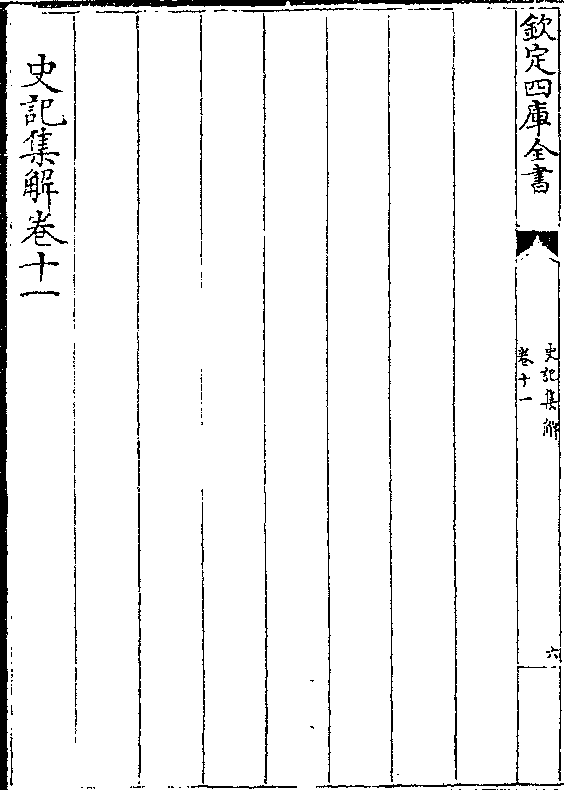 欽定四庫全書
史記集解
卷十一
六
史記集解卷十一